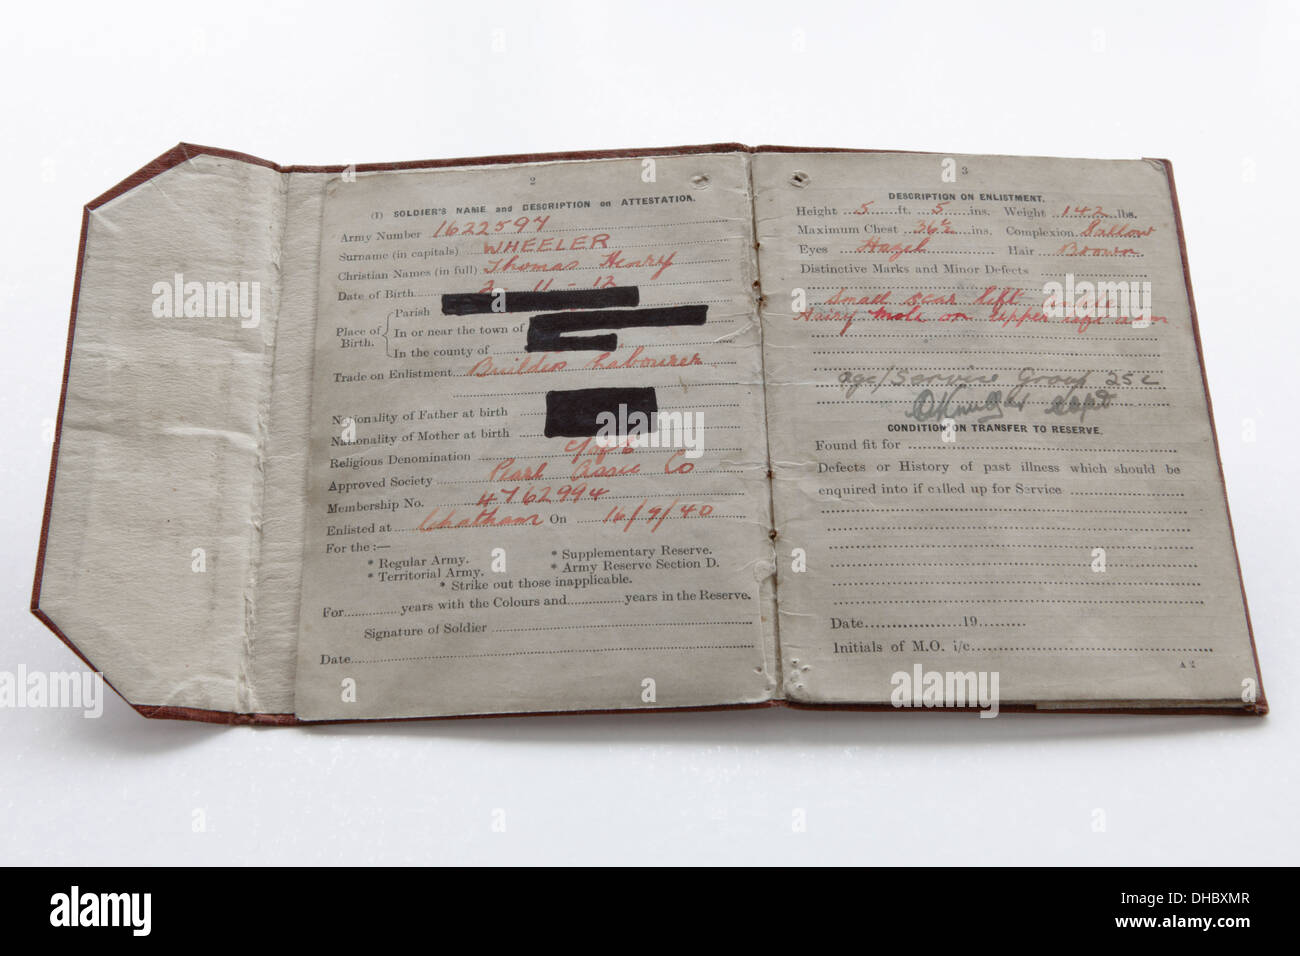 2
(1) SOLDIER'S NAME and DESCRIPTION on ATTESTATION.
Army Number 1622597
Surname (in capitals) WHEELER
Christian Names (in full) Thomas Henry
Date of Birth 2-11-12
Place of Birth.
Parish
In or near the town of
In the county of
Trade on Enlistment Builders Labourer
Nationality of Father at birth
Nationality of Mother at birth
Religious Denomination C of E
Approved Society Pearl Assce Co
Membership No. 4762994
Enlisted at Chatham On 16/9/40
For the :—
* Regular Army. * Supplementary Reserve.
* Territorial Army. * Army Reserve Section D.
* Strike out those inapplicable.
For............years with the Colours and............years in the Reserve.
Signature of Soldier
Date
3
DESCRIPTION ON ENLISTMENT.
Height 5 ft. 5 ins. Weight 142 lbs.
Maximum Chest 36½ ins. Complexion Sallow
Eyes Hazel Hair Brown
Distinctive Marks and Minor Defects
Small scar left ankle
Hairy mole on upper arm
age/Service Group 25c
Capt
CONDITION ON TRANSFER TO RESERVE.
Found fit for
Defects or History of past illness which should be
enquired into if called up for Service
Date..................19.........
Initials of M.O. i/c
A 2
alamy
Image ID: DHBXMR
www.alamy.com